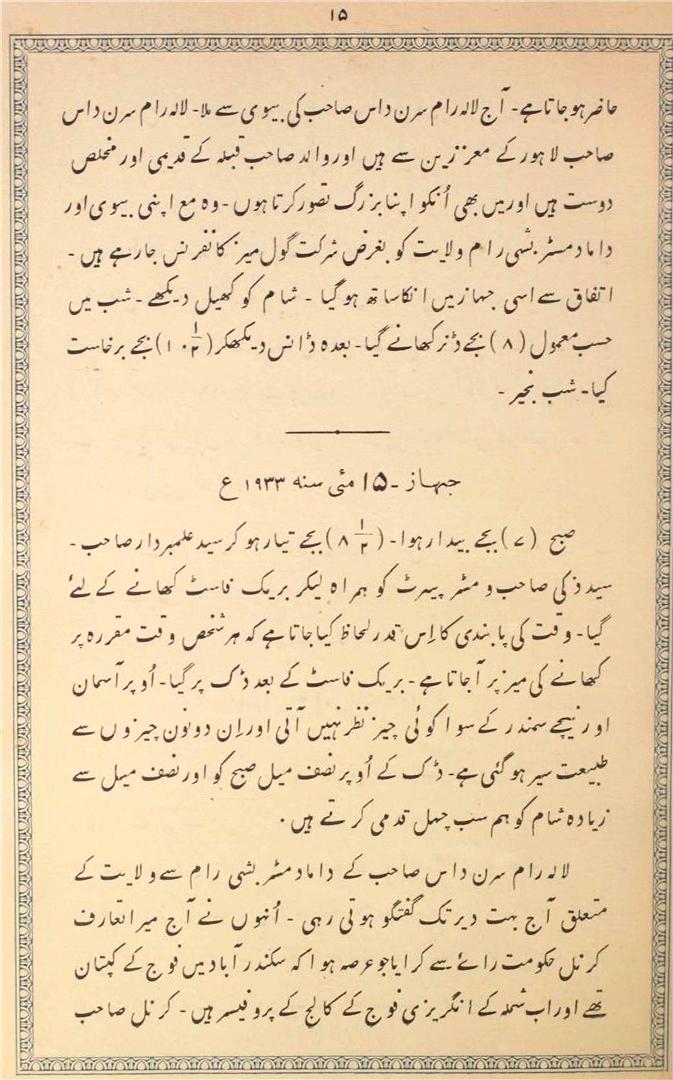 ۱۵
حاضر ہوجاتا ہے۔ آج لالہ رام سرن داس صاحب کی بیوی سے ملا۔ لالہ رام سرن داس
صاحب لاہور کے معززین سے ہیں اور والد صاحب قبلہ کے قدیمی اور مخلص
دوست ہیں اور میں بھی اُنکو اپنا بزرگ تصور کرتا ہوں۔ وہ مع اپنی بیوی اور
داماد مسٹر بشی رام ولایت کو بغرض شرکت گول میز کانفرنس جارہے ہیں۔
اتفاق سے اسی جہاز میں انکا ساتھ ہوگیا۔ شام کو کھیل دیکھے۔ شب میں
حسب معمول (۸) بجے ڈنر کھانے گیا۔ بعدہ ڈانس دیکھکر (۱۰ ۱/۲) بجے برخاست
کیا۔ شب بخیر۔
جہاز۔ ۱۵ مئی سنه ۱۹۳۳ ع
صبح (۷) بجے بیدار ہوا۔ (۸ ۱/۲) بجے تیار ہوکر سید علمبردار صاحب۔
سید ذکی صاحب و مسٹر پیرٹ کو ہمراہ لیکر بریک فاسٹ کھانے کے لئے
گیا۔ وقت کی پابندی کا اِس قدر لحاظ کیا جاتا ہے کہ ہر شخص وقت مقررہ پر
کھانے کی میز پر آجاتا ہے۔ بریک فاسٹ کے بعد ڈک پر گیا۔ اُوپر آسمان
اور نیچے سمندر کے سوا کوئی چیز نظر نہیں آتی اور اِن دونون چیزوں سے
طبیعت سیر ہوگئی ہے۔ ڈک کے اُوپر نصف میل صبح کو اور نصف میل سے
زیادہ شام کو ہم سب چہل قدمی کرتے ہیں۔
لالہ رام سرن داس صاحب کے داماد مسٹر بشی رام سے ولایت کے
متعلق آج بہت دیر تک گفتگو ہوتی رہی۔ اُنہوں نے آج میرا تعارف
کرنل حکومت رائے سے کرایا جو عرصہ ہوا کہ سکندرآباد میں فوج کے کپتان
تھے اور اب شملہ کے انگریزی فوج کے کالج کے پروفیسر ہیں۔ کرنل صاحب